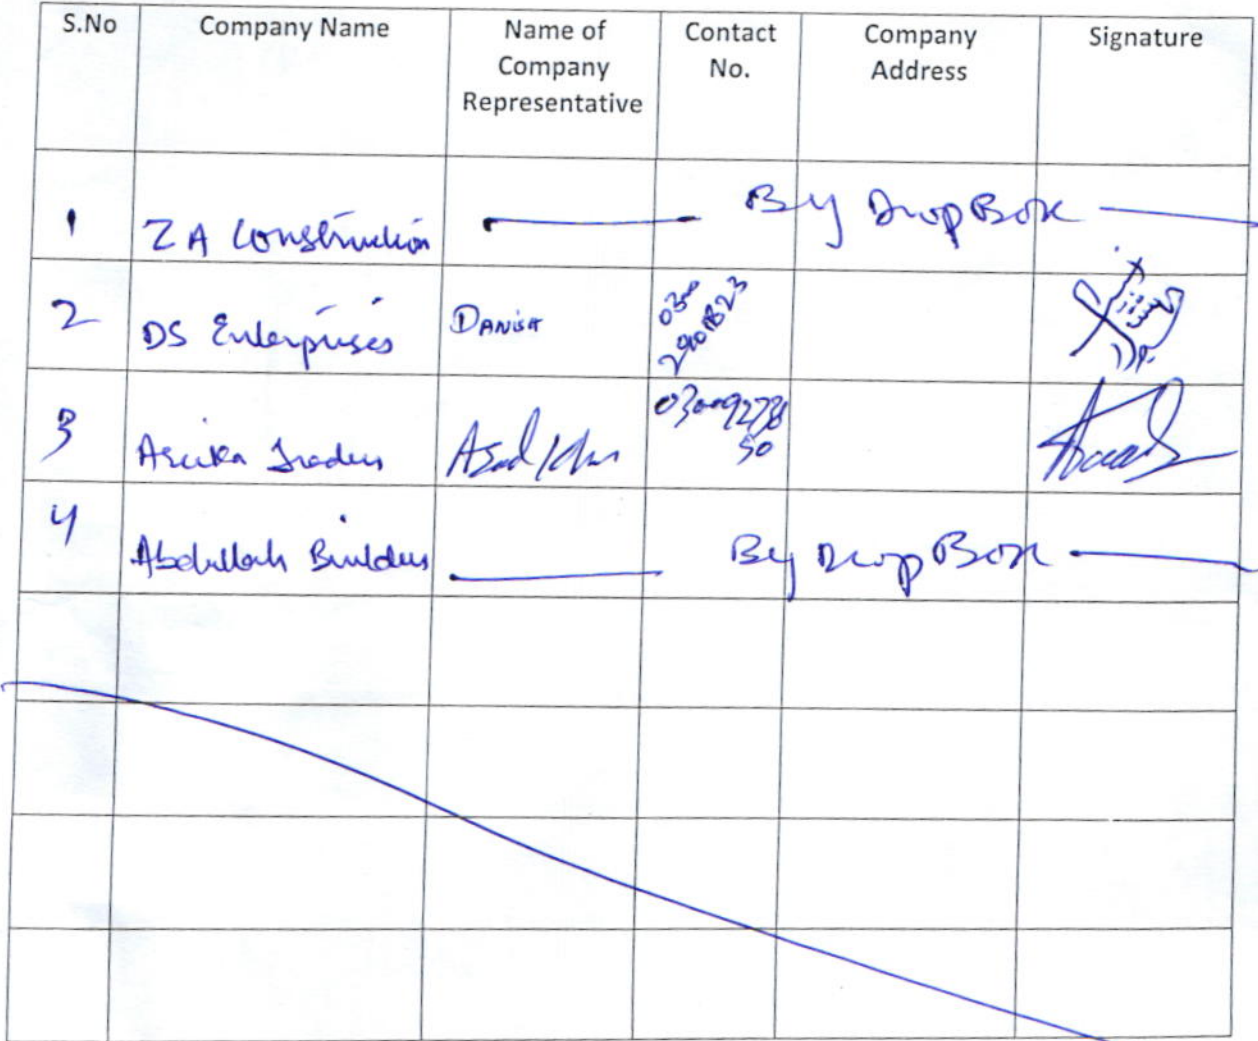 S.No Company Name Name of Company Representative Contact No. Company Address Signature
1 ZA Construction By Drop Box
2 DS Enterprises Danish 0300
3 Traders Asad Khan 03009273850
4 Abdullah Builders By Drop Box